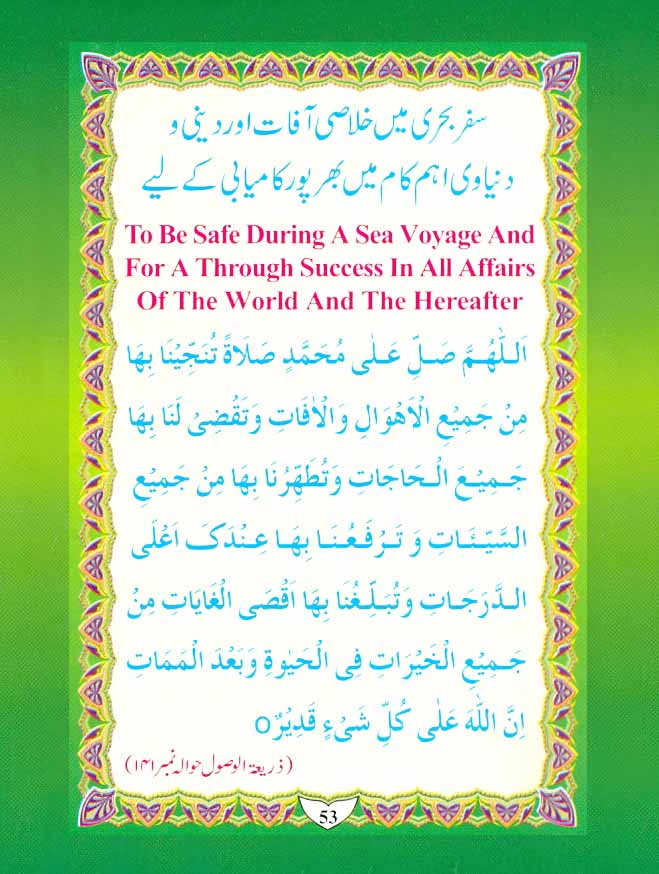 سفر بحری میں خلاصی آفات اور دینی و
دنیاوی اہم کام میں بھرپور کامیابی کے لیے
To Be Safe During A Sea Voyage And
For A Through Success In All Affairs
Of The World And The Hereafter
اَللّٰهُمَّ صَلِّ عَلٰی مُحَمَّدٍ صَلَاةً تُنَجِّیْنَا بِهَا
مِنْ جَمِیْعِ الْاَهْوَالِ وَالْاٰفَاتِ وَتَقْضِیْ لَنَا بِهَا
جَمِیْعَ الْحَاجَاتِ وَتُطَهِّرُنَا بِهَا مِنْ جَمِیْعِ
السَّیِّئَاتِ وَ تَرْفَعُنَا بِهَا عِنْدَکَ اَعْلَی
الدَّرَجَاتِ وَتُبَلِّغُنَا بِهَا اَقْصَی الْغَایَاتِ مِنْ
جَمِیْعِ الْخَیْرَاتِ فِی الْحَیٰوةِ وَبَعْدَ الْمَمَاتِ
اِنَّ اللّٰهَ عَلٰی کُلِّ شَیْءٍ قَدِیْرٌ○
(ذریعۃ الوصول حوالہ نمبر ۱۴۱)
53